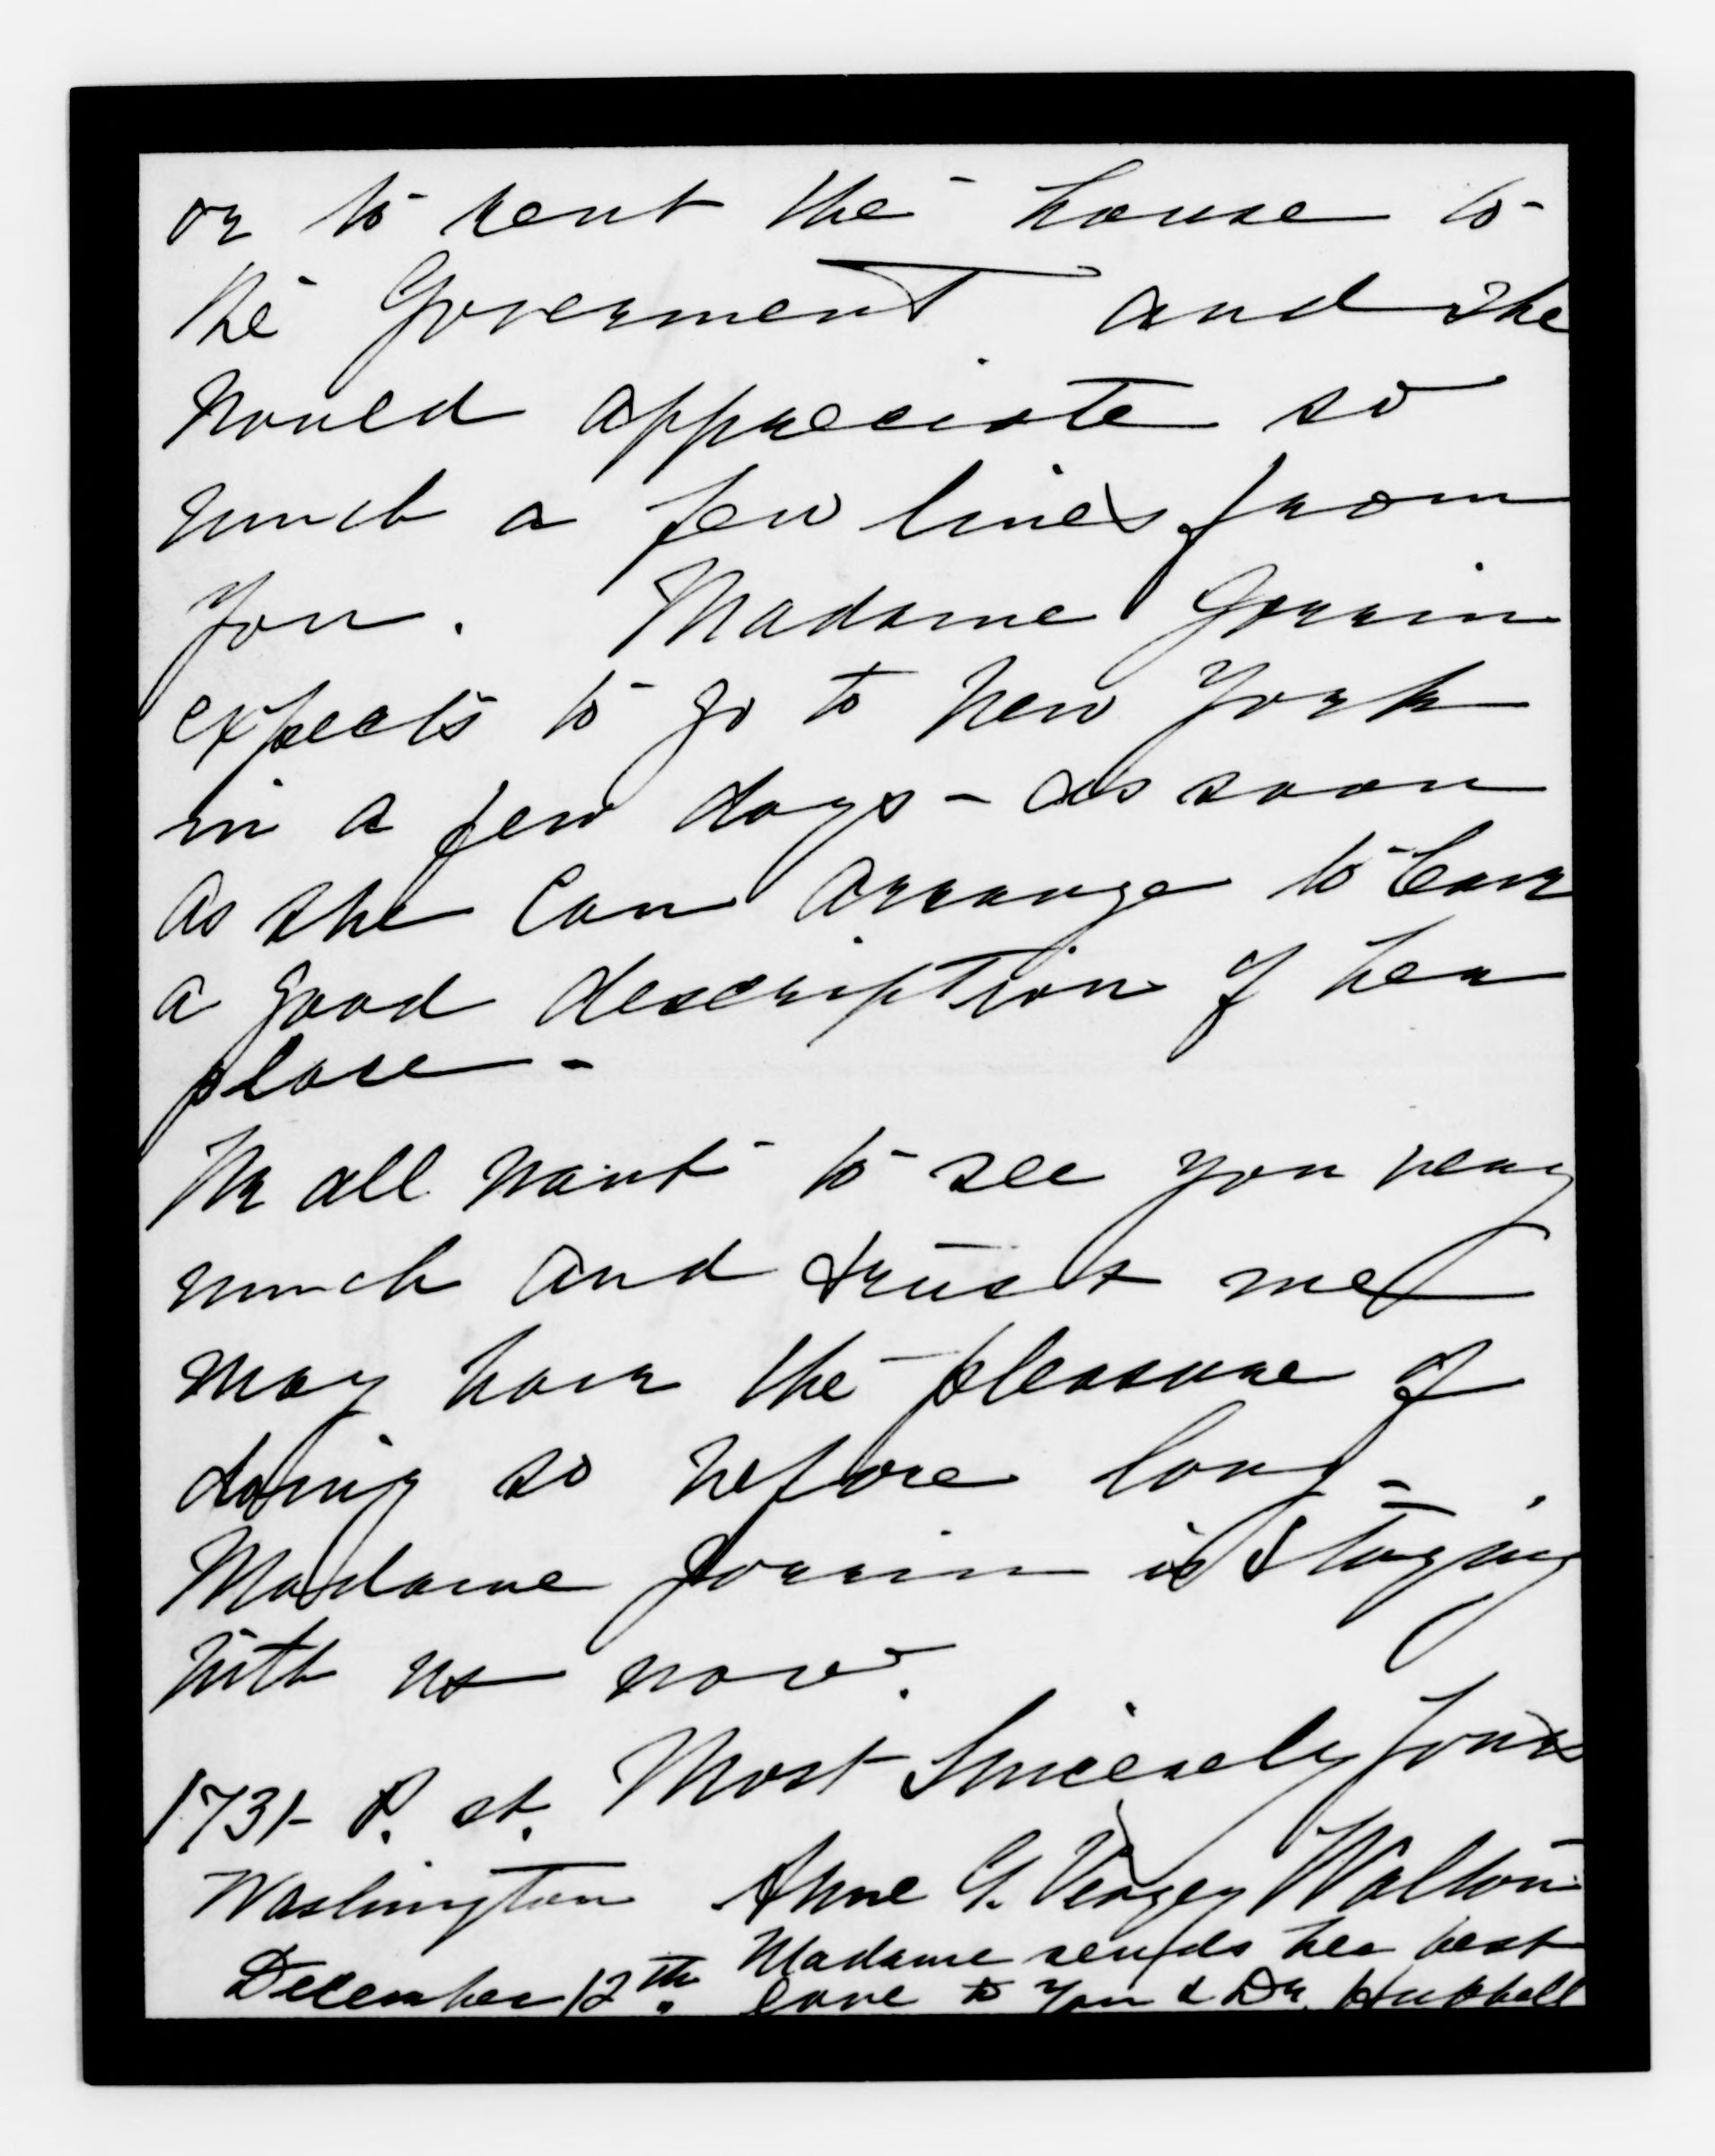 or to rent the house to
the Goverment and she
would appreciate so
much a few lines from
you. Madame Jorrin
expects to go to New York
in a few days - as soon
as she can arrange to leave
a good description of her
place -
We all want to see you very
much and trust we
may have the pleasure of
doing so before long -
Madame Jorrin is staying
with us now.
Most Sincerely Yours
1731 - P. st.
Washington Anne G. Walton
December 12th. Madame sends her best
love to you & Dr. Hubbell